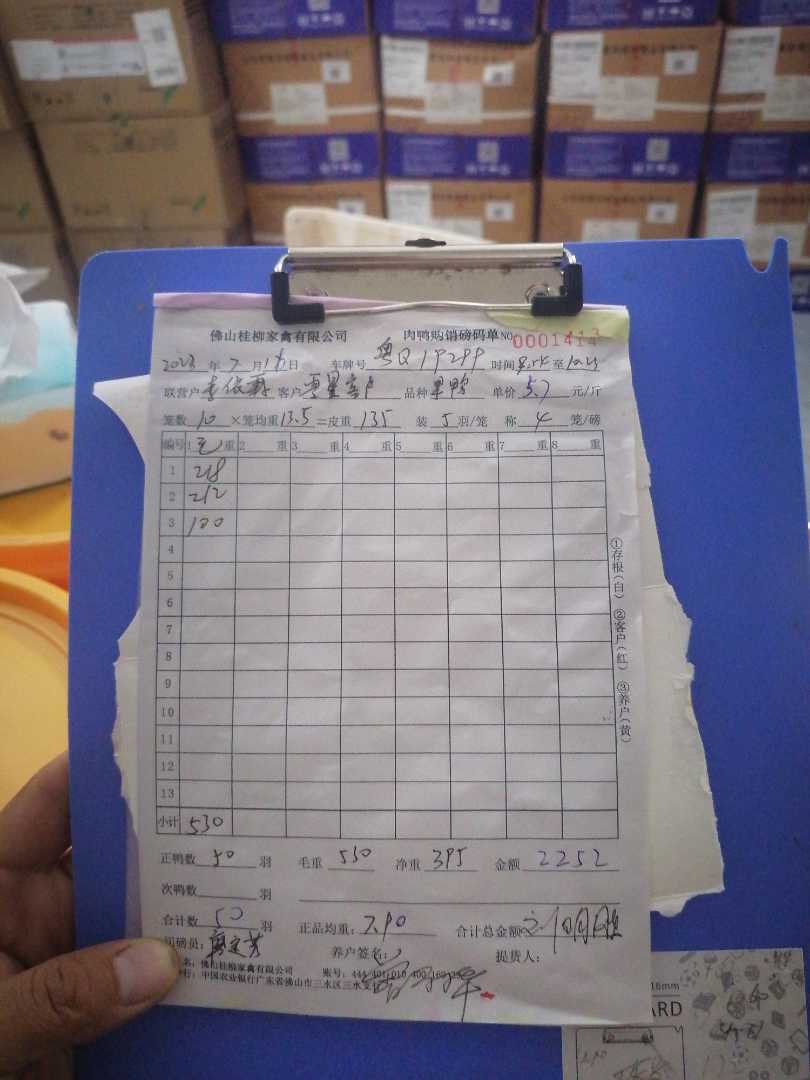 佛山桂柳家禽有限公司 肉鸭购销磅码单 NO 0001413
2023年7月16日 车牌号 粤Q19299 时间 至
联营户 李依 客户 零星客户 品种 单价 5.7 元/斤
笼数 10 ×笼均重 13.5 =皮重 135 装 5 羽/笼 称 4 笼/磅
编号 1 毛 重 2 重 3 重 4 重 5 重 6 重 7 重 8 重
1 218
2 212
3 100
4
5
6
7
8
9
10
11
12
13
小计 530
①存根(白) ②客户(红) ③养户(黄)
正鸭数 50 羽 毛重 530 净重 395 金额 2252
次鸭数 羽
合计数 50 羽 正品均重: 7.90 合计总金额
司磅员: 养户签名: 提货人:
名: 佛山桂柳家禽有限公司 账号: 444
行: 中国农业银行广东省佛山市三水区三水支行
16mm
ARD